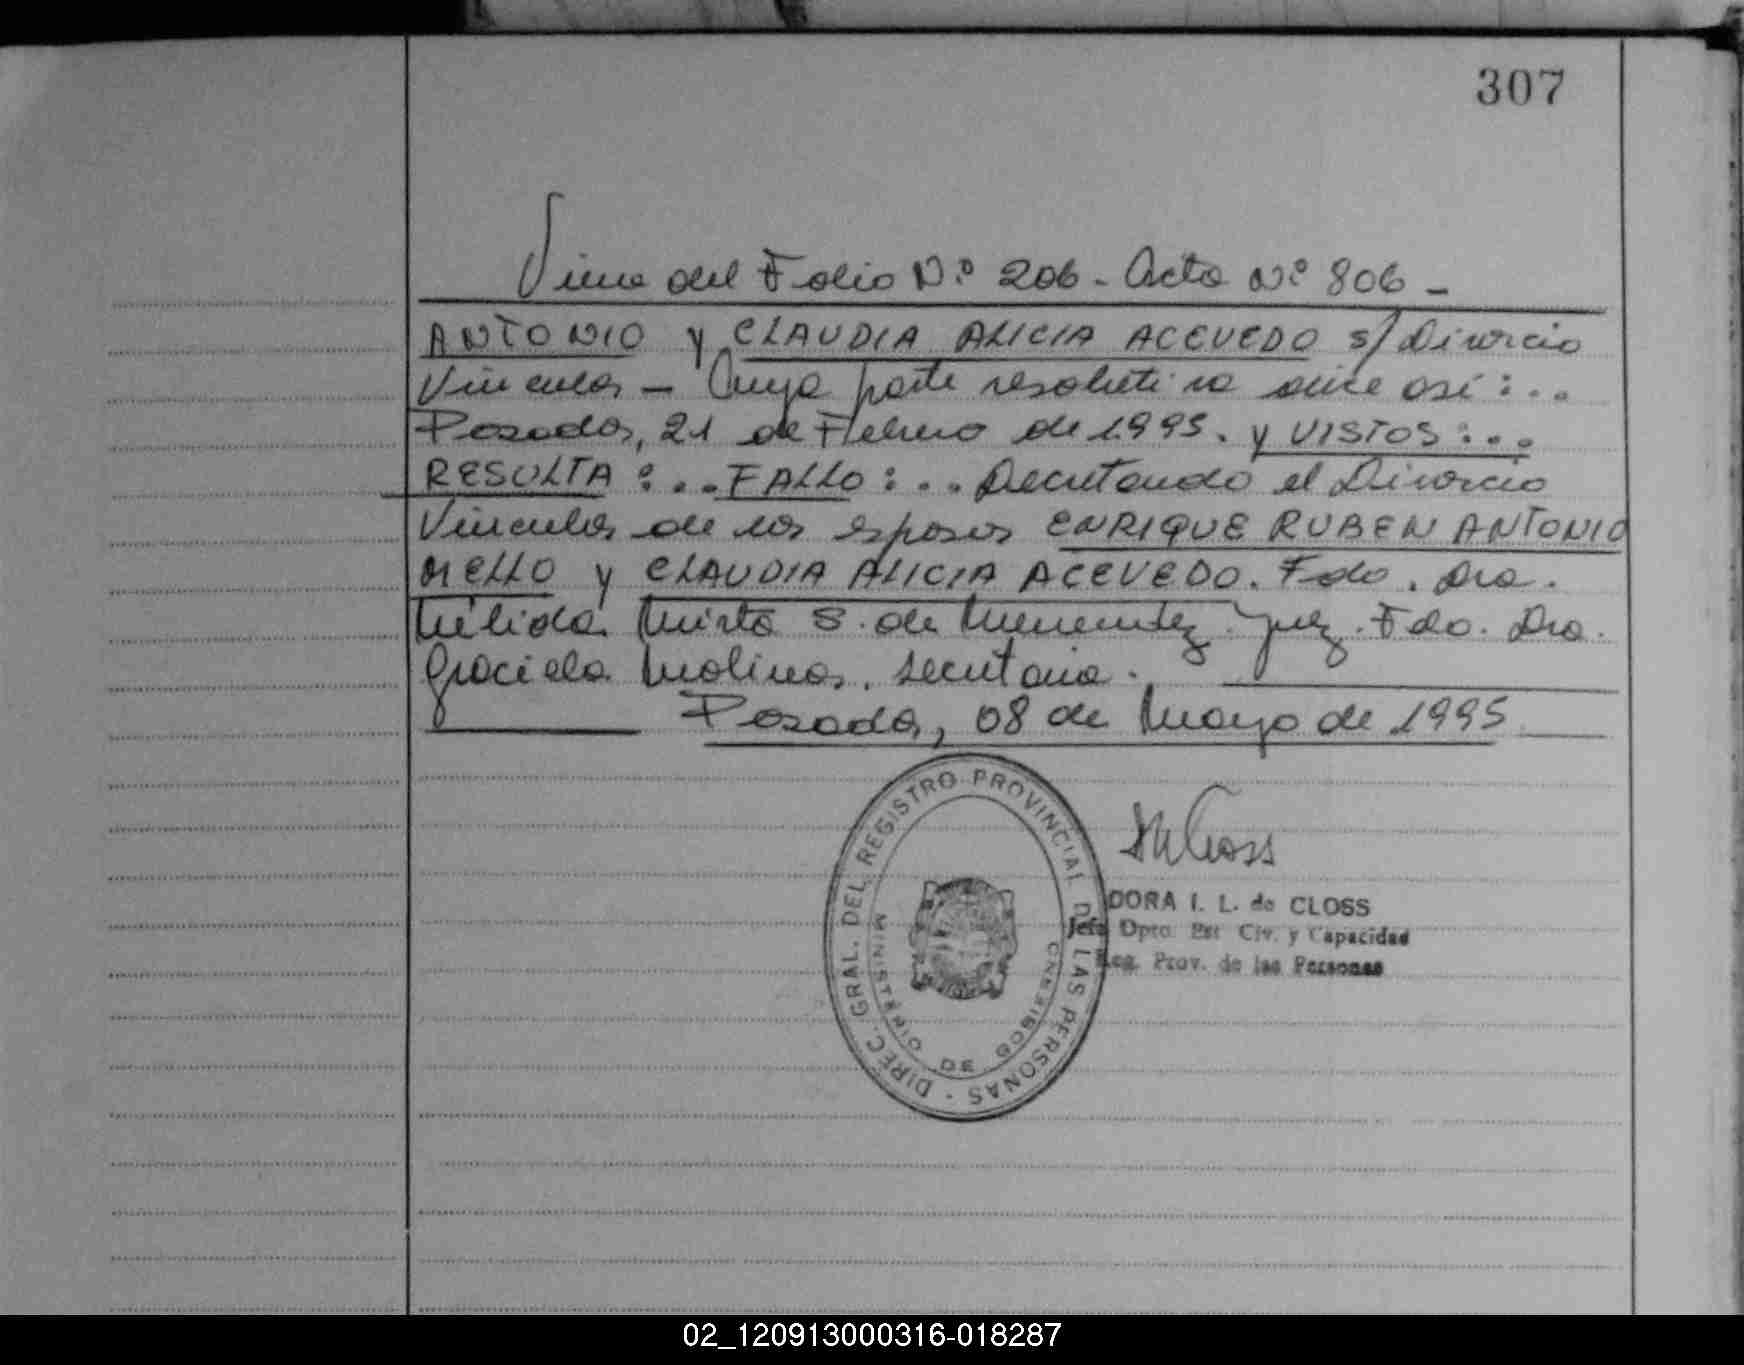 307
Viene del Folio N.º 206 - Acta N.º 806 -
ANTONIO y CLAUDIA ALICIA ACEVEDO s/ Divorcio
Vincular - Cuya parte resolutiva dice así:...
Posadas, 21 de Febrero de 1.995. y VISTOS:...
RESULTA:...FALLO:... Decretando el Divorcio
Vincular de los esposos ENRIQUE RUBEN ANTONIO
MELLO y CLAUDIA ALICIA ACEVEDO. Fdo. Dra.
Nélida Mirta S. de Menendez. Juez. Fdo. Dra.
Graciela Molinas. secretaria.
Posadas, 08 de Mayo de 1995
DIREC. GRAL. DEL REGISTRO PROVINCIAL DE LAS PERSONAS -
MINISTERIO DE GOBIERNO
DORA I. L. de CLOSS
Jefe Dpto. Est. Civ. y Capacidad
Reg. Prov. de las Personas
02_120913000316-018287